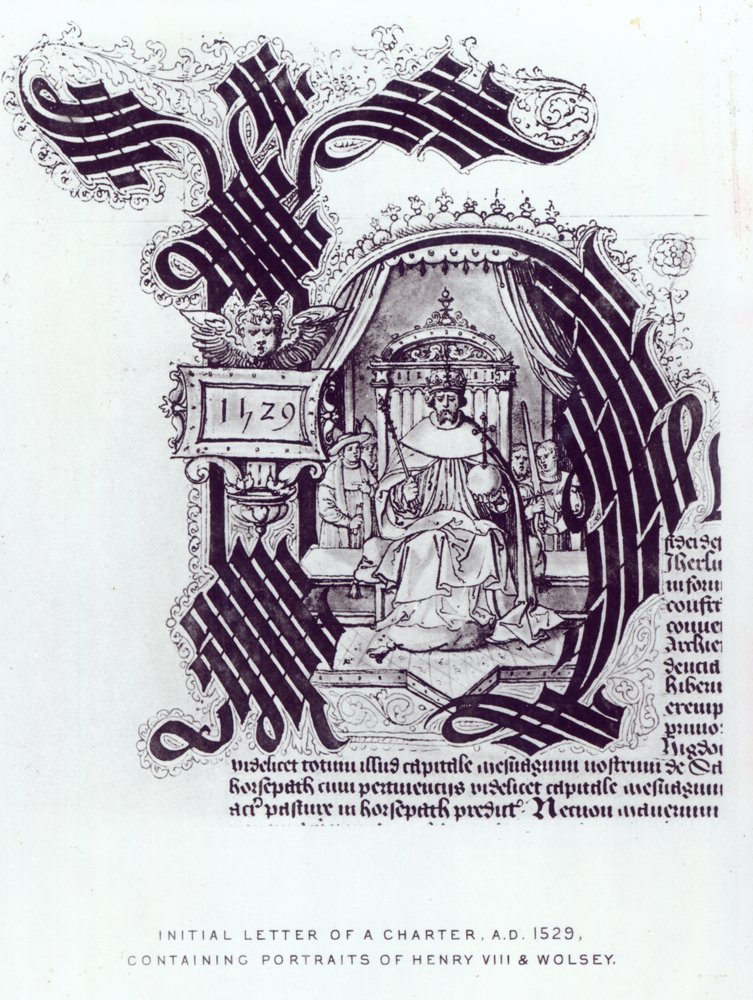 1529
fidei def
in form
confir
conve
Archie
dencia
Hiberni
exemp
primo
videlicet totum illud capitale mesuagium nostrum de Sa
horsepath cum pertinencijs videlicet capitale mesuagium
acr pasture in horsepath predict. Necnon manerium
INITIAL LETTER OF A CHARTER, A.D. 1529,
CONTAINING PORTRAITS OF HENRY VIII & WOLSEY.